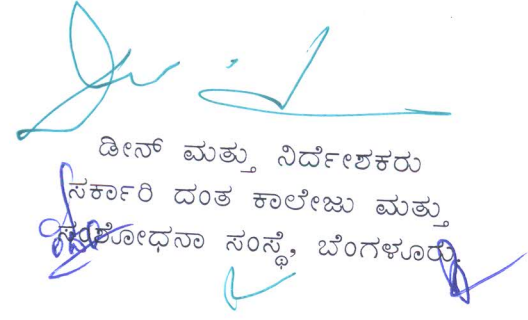 ಡೀನ್ ಮತ್ತು ನಿರ್ದೇಶಕರು
ಸರ್ಕಾರಿ ದಂತ ಕಾಲೇಜು ಮತ್ತು
ಸಂಶೋಧನಾ ಸಂಸ್ಥೆ, ಬೆಂಗಳೂರು.